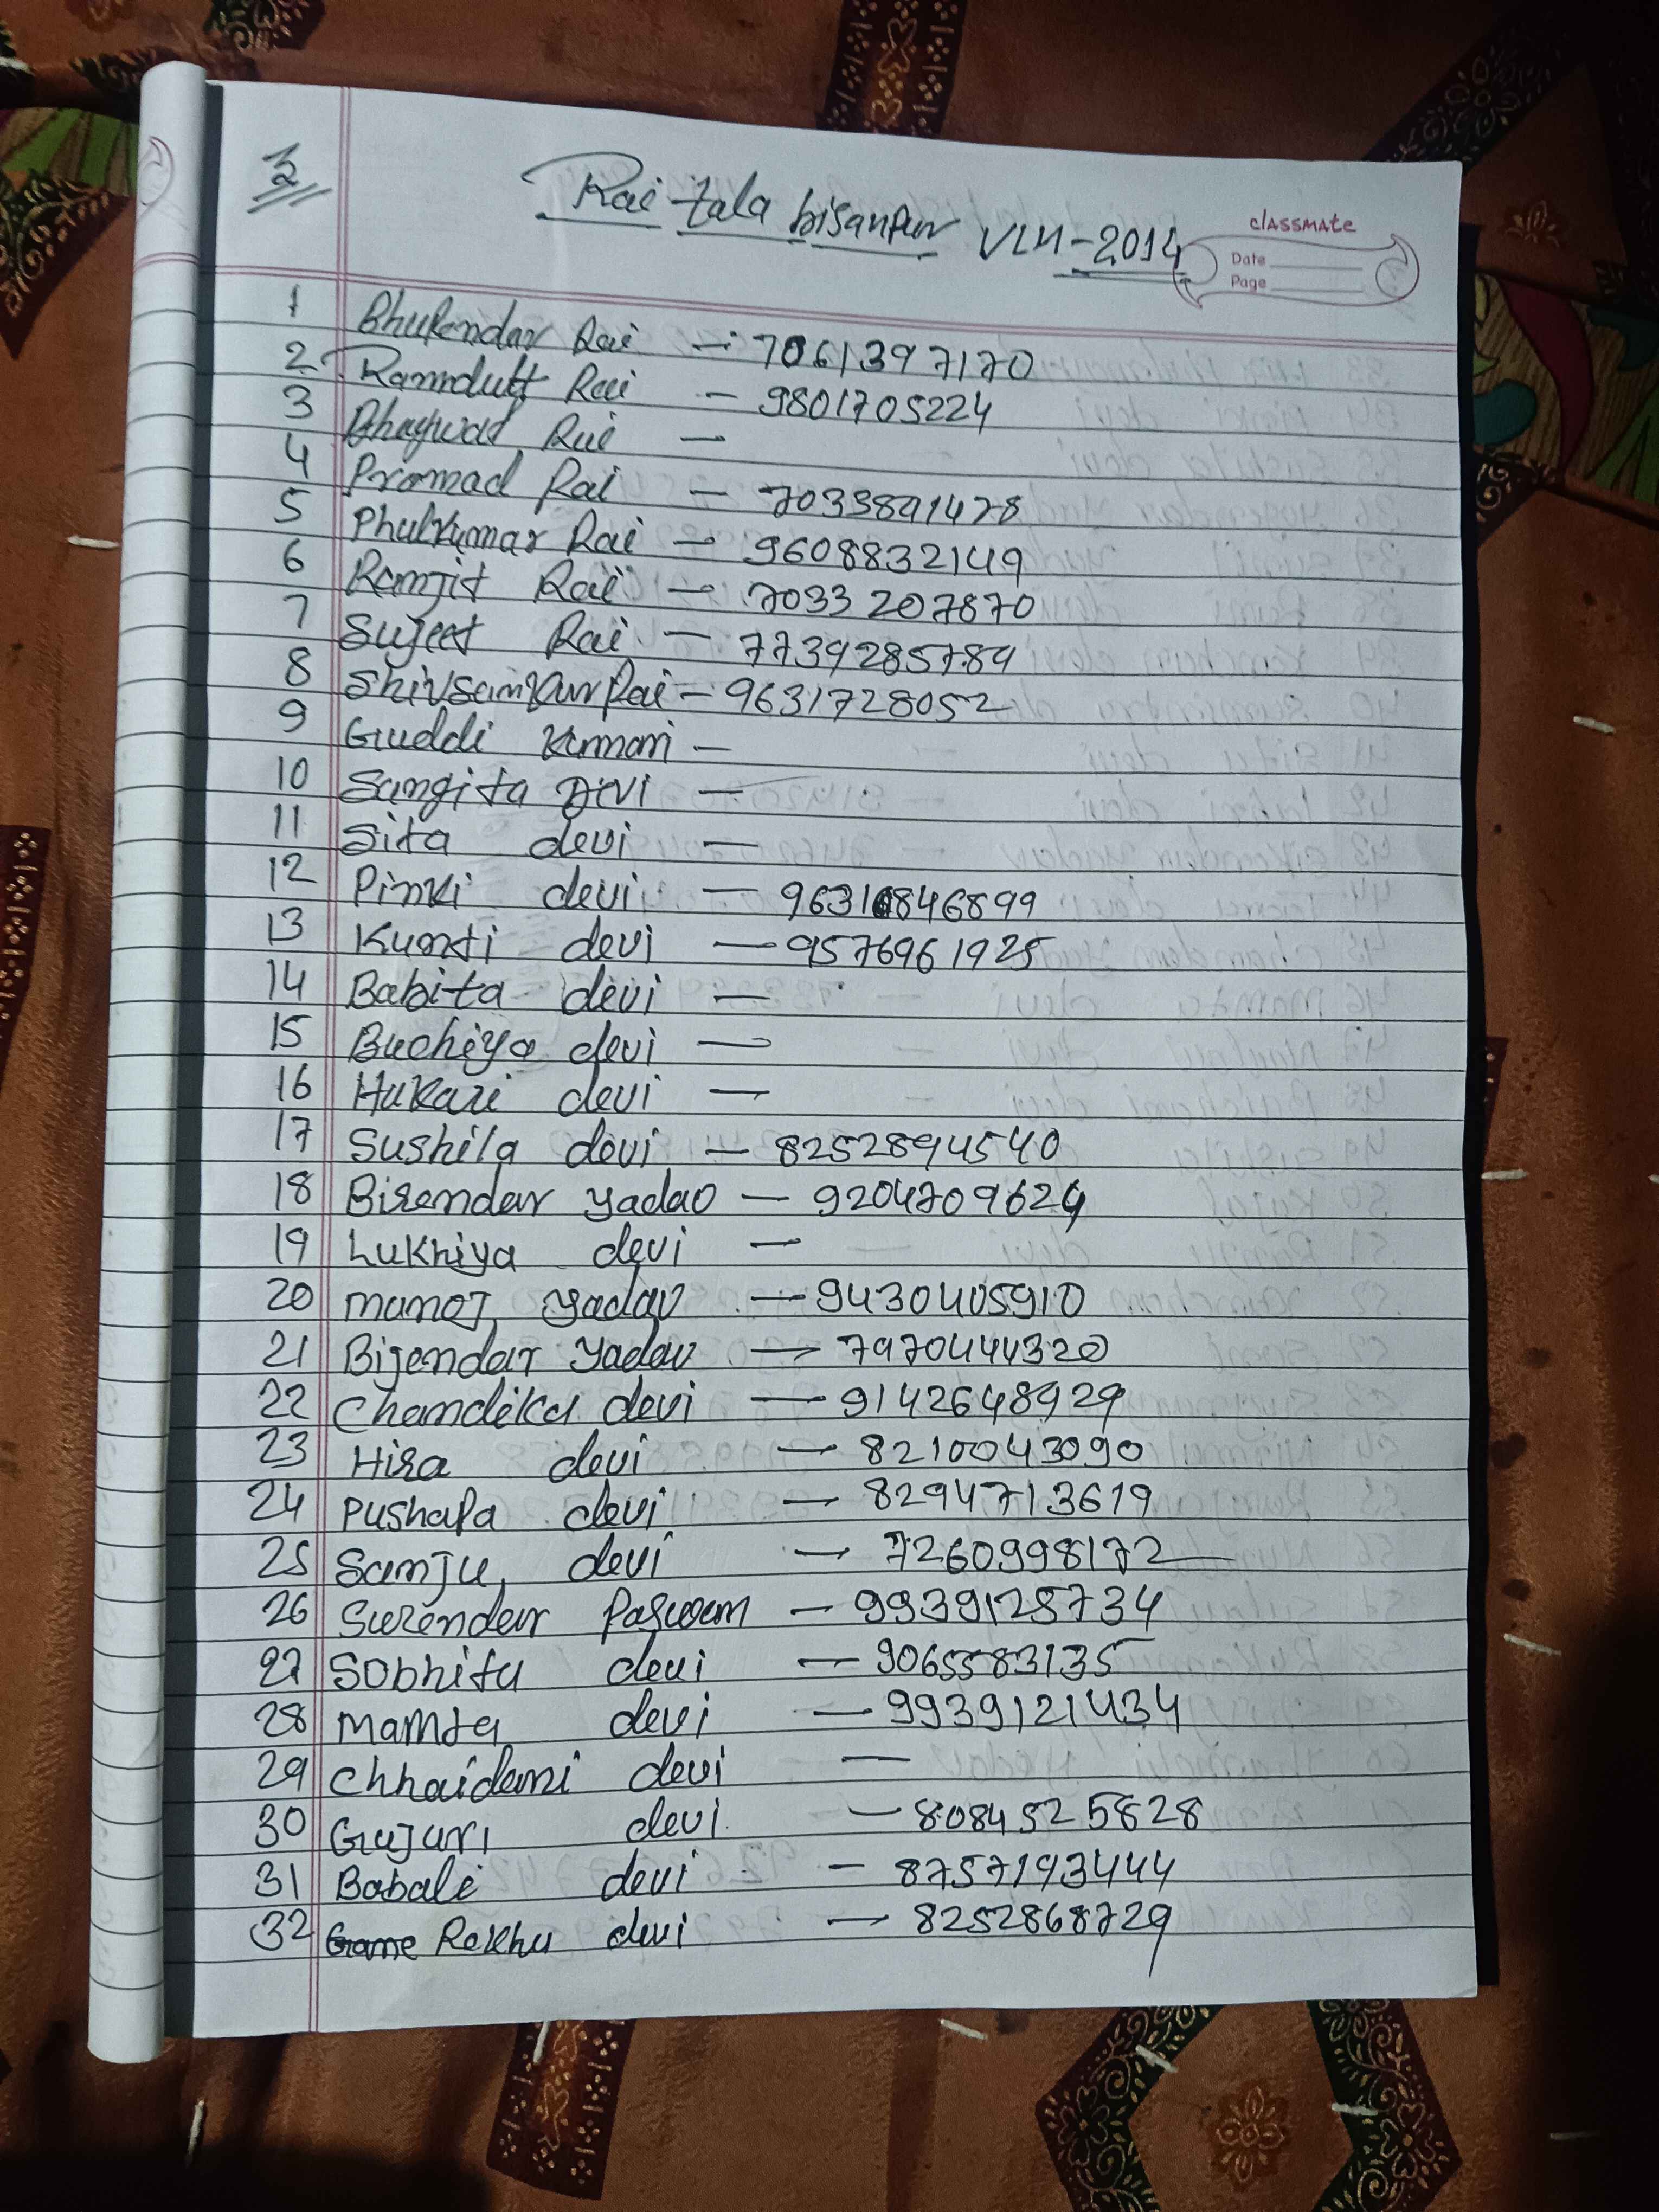 3
Rai tala bisanpur VLM-2014
classmate
Date
Page
1 Bhupendar Rai - 7061397170
2 Ramdutt Rai - 9801705224
3 Rai -
4 Promad Rai - 7033891478
5 Phulkumar Rai - 9608832149
6 Ramjit Rai - 7033207870
7 Sujeet Rai - 7739285789
8 Shivsankar Rai - 9631728052
9 Guddi Kumari -
10 Sangita Devi -
11 Sita devi -
12 Pinki devi - 9631846899
13 Kunti devi - 9576961925
14 Babita devi -
15 Buchiya devi -
16 Hukari devi -
17 Sushila devi - 8252894540
18 Birendar yadao - 9204709624
19 Lukhiya devi -
20 Manoj yadav - 9430405910
21 Bijendar yadav - 7970444320
22 Chandika devi - 9142648929
23 Hira devi - 8210043090
24 Pushapa devi - 8294713619
25 Sanju devi - 7260998172
26 Surendar Paswan - 9939128734
27 Sobhita devi - 9065583135
28 Mamta devi - 9939121434
29 Chhaidani devi -
30 Gujari devi - 8084525828
31 Babale devi - 8757193444
32 Rekha devi - 8252868729